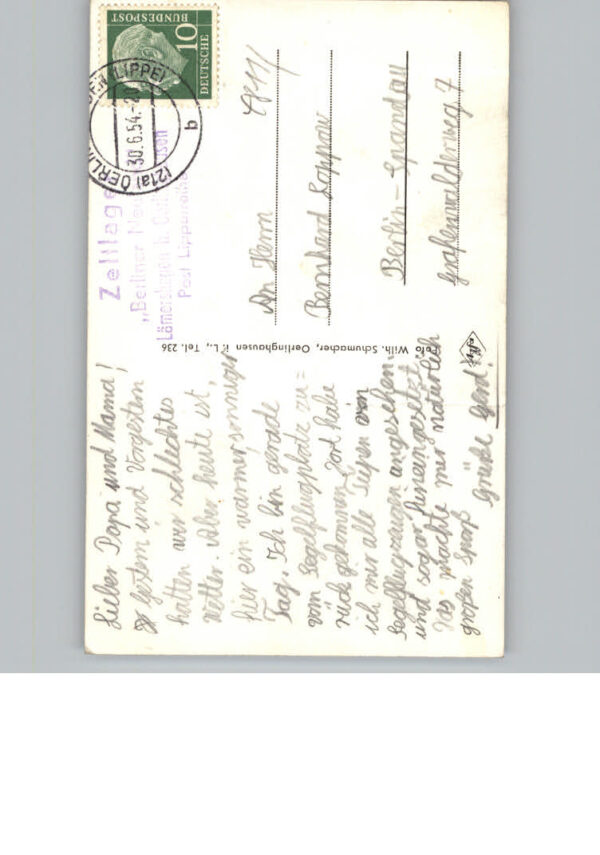 Lieber Papa und Mama!
Gestern und Vorgestern
hatten wir schlechtes
Wetter. Aber heute ist
hier ein warmer sonniger
Tag. Ich bin gerade
vom Segelflugplatz zu=
rück gekommen. Dort habe
ich mir alle Typen von
Segelflugzeugen angesehen
und sogar hineingesetzt
Das machte mir natürlich
großen Spaß
Grüße Gerd!
Foto Wilh. Schumacher, Oerlinghausen i. L., Tel. 236
DEUTSCHE
BUNDESPOST
10
(21a) OERLINGHAUSEN (LIPPE)
30.6.54.-20
b
Zeltlager
„Berliner
Post Lipperreihe
An Herrn
Bernhard Koppau
Berlin-Spandau
Grafenwalderweg 7